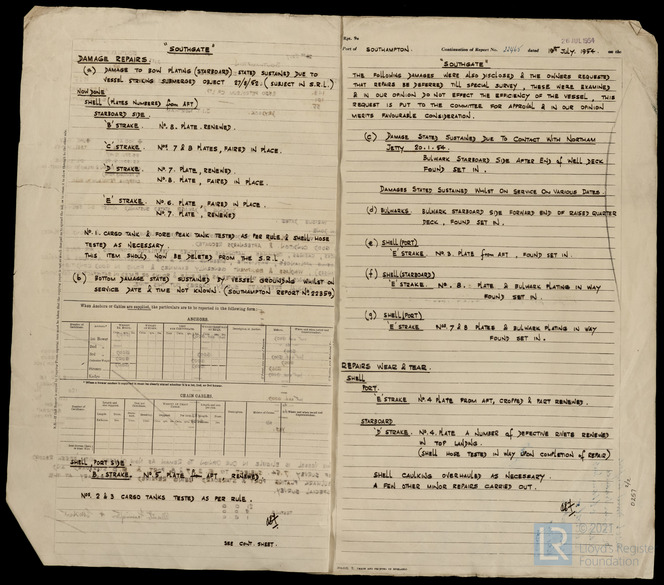 "SOUTHGATE"
DAMAGE REPAIRS:
(a) DAMAGE TO BOW PLATING (STARBOARD) STATED SUSTAINED DUE TO
VESSEL STRIKING SUBMERGED OBJECT 27/8/52. (SUBJECT IN S.R.L.)
NOW DONE
SHELL (PLATES NUMBERED from AFT)
STARBOARD SIDE.
'B' STRAKE. No. 8. PLATE RENEWED.
'C' STRAKE. Nos. 7 & 8 PLATES, FAIRED IN PLACE.
'D' STRAKE. No. 7. PLATE, RENEWED.
No. 8. PLATE, FAIRED IN PLACE.
'E' STRAKE. No. 6. PLATE, FAIRED IN PLACE.
No. 7. PLATE, RENEWED
No. 1. CARGO TANK & FORE PEAK TANK TESTED AS PER RULE & SHELL HOSE
TESTED AS NECESSARY.
THIS ITEM SHOULD NOW BE DELETED FROM THE S.R.L.
(b) BOTTOM DAMAGE STATED SUSTAINED BY VESSEL GROUNDING WHILST ON
SERVICE DATE & TIME NOT KNOWN. (SOUTHAMPTON REPORT No. 22359)
When Anchors or Cables are supplied, the particulars are to be reported in the following form:
ANCHORS.
CHAIN CABLES.
SHELL, PORT SIDE
'B' STRAKE. No. 5 PLATE from AFT RENEWED
Nos. 2 & 3 CARGO TANKS TESTED AS PER RULE.
SEE CONT. SHEET.
Rpt. 9a
26 JUL 1954
Port of SOUTHAMPTON. Continuation of Report No. 22465 dated 19th JULY. 1954. on the
"SOUTHGATE"
THE FOLLOWING DAMAGES WERE ALSO DISCLOSED & THE OWNERS REQUESTED
THAT REPAIRS BE DEFERRED TILL SPECIAL SURVEY, THESE WERE EXAMINED
& IN OUR OPINION DO NOT EFFECT THE EFFICIENCY OF THE VESSEL, THIS
REQUEST IS PUT TO THE COMMITTEE FOR APPROVAL & IN OUR OPINION
MERITS FAVOURABLE CONSIDERATION.
(c) DAMAGE STATED SUSTAINED DUE TO CONTACT WITH NORTHAM
JETTY 20.1.54.
BULWARK STARBOARD SIDE AFTER END OF WELL DECK
FOUND SET IN.
DAMAGES STATED SUSTAINED WHILST ON SERVICE ON VARIOUS DATES.
(d) BULWARKS BULWARK STARBOARD SIDE FORWARD END OF RAISED QUARTER
DECK, FOUND SET IN.
(e) SHELL (PORT)
'E' STRAKE No 3. PLATE from AFT, FOUND SET IN.
(f) SHELL (STARBOARD)
'E' STRAKE. No. 8. PLATE & BULWARK PLATING IN WAY
FOUND SET IN.
(g) SHELL (PORT)
'E' STRAKE No. 7 & 8 PLATES & BULWARK PLATING IN WAY
FOUND SET IN.
REPAIRS WEAR & TEAR.
SHELL
PORT.
'E' STRAKE No. 4 PLATE FROM AFT, CROPPED & PART RENEWED.
STARBOARD
'D' STRAKE No. 4. PLATE A NUMBER of DEFECTIVE RIVETS RENEWED
IN TOP LANDING.
(SHELL HOSE TESTED IN WAY UPON COMPLETION OF REPAIR)
SHELL CAULKING OVERHAULED AS NECESSARY.
A FEW OTHER MINOR REPAIRS CARRIED OUT.
LR
© 2021
Lloyd's Register
Foundation